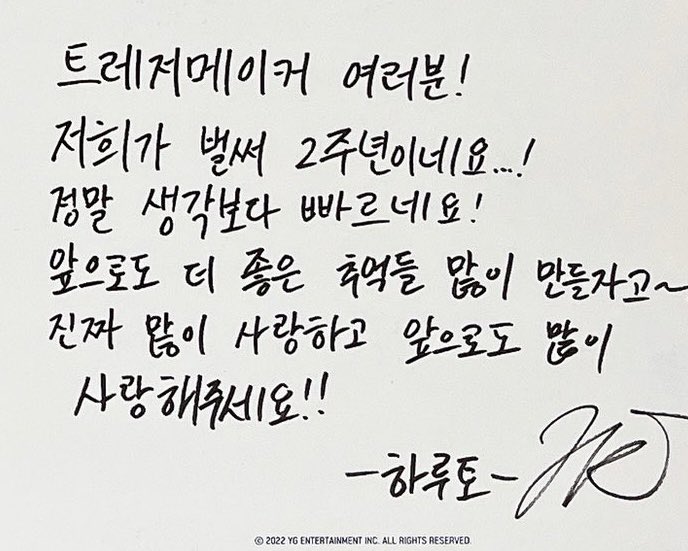 트레저메이커 여러분!
저희가 벌써 2주년이네요...!
정말 생각보다 빠르네요!
앞으로도 더 좋은 추억들 많이 만들자고~
진짜 많이 사랑하고 앞으로도 많이
사랑해주세요!!
-하루토-
© 2022 YG ENTERTAINMENT INC. ALL RIGHTS RESERVED.